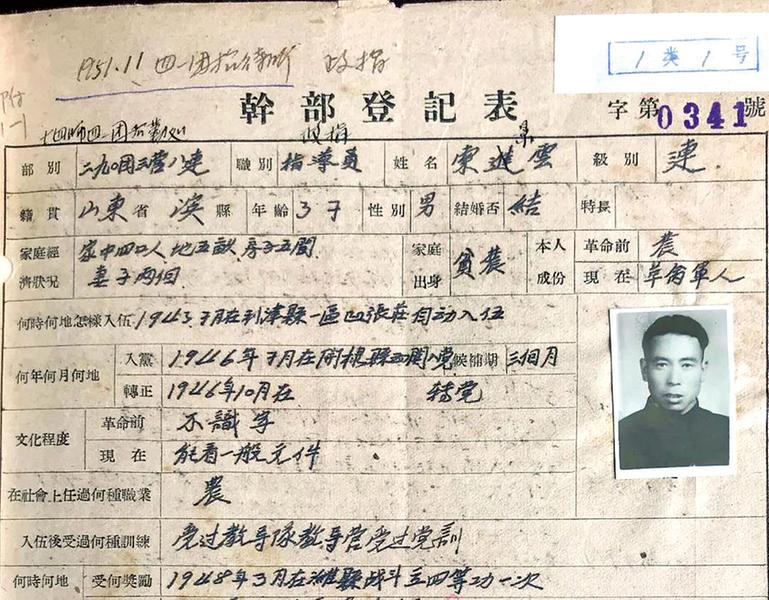 1951.11 四一团招待所 政指
1 类 1 号
幹部登記表
字第0341號
部別 二九〇团三营八連 職別 指導員 姓名 東進雲 級別 連
籍貫 山東省 濱縣 年齡 37 性別 男 結婚否 結 特長
家庭經濟狀況 家中四口人 地五畝 房子五間 妻子兩個 家庭出身 貧農 本人成份 革命前 農
現在 革命軍人
何時何地怎樣入伍 1943.7月在利津縣一區凹張莊自动入伍
何年何月何地 入黨 1946年7月在 入党 候補期 三個月
轉正 1946年10月在 转党
文化程度 革命前 不識字
現在 能看一般元件
在社會上任過何種職業 農
入伍後受過何種訓練 受过教导隊教导营受过党訓
何時何地 受何獎勵 1948年3月在濰縣战斗立四等功一次